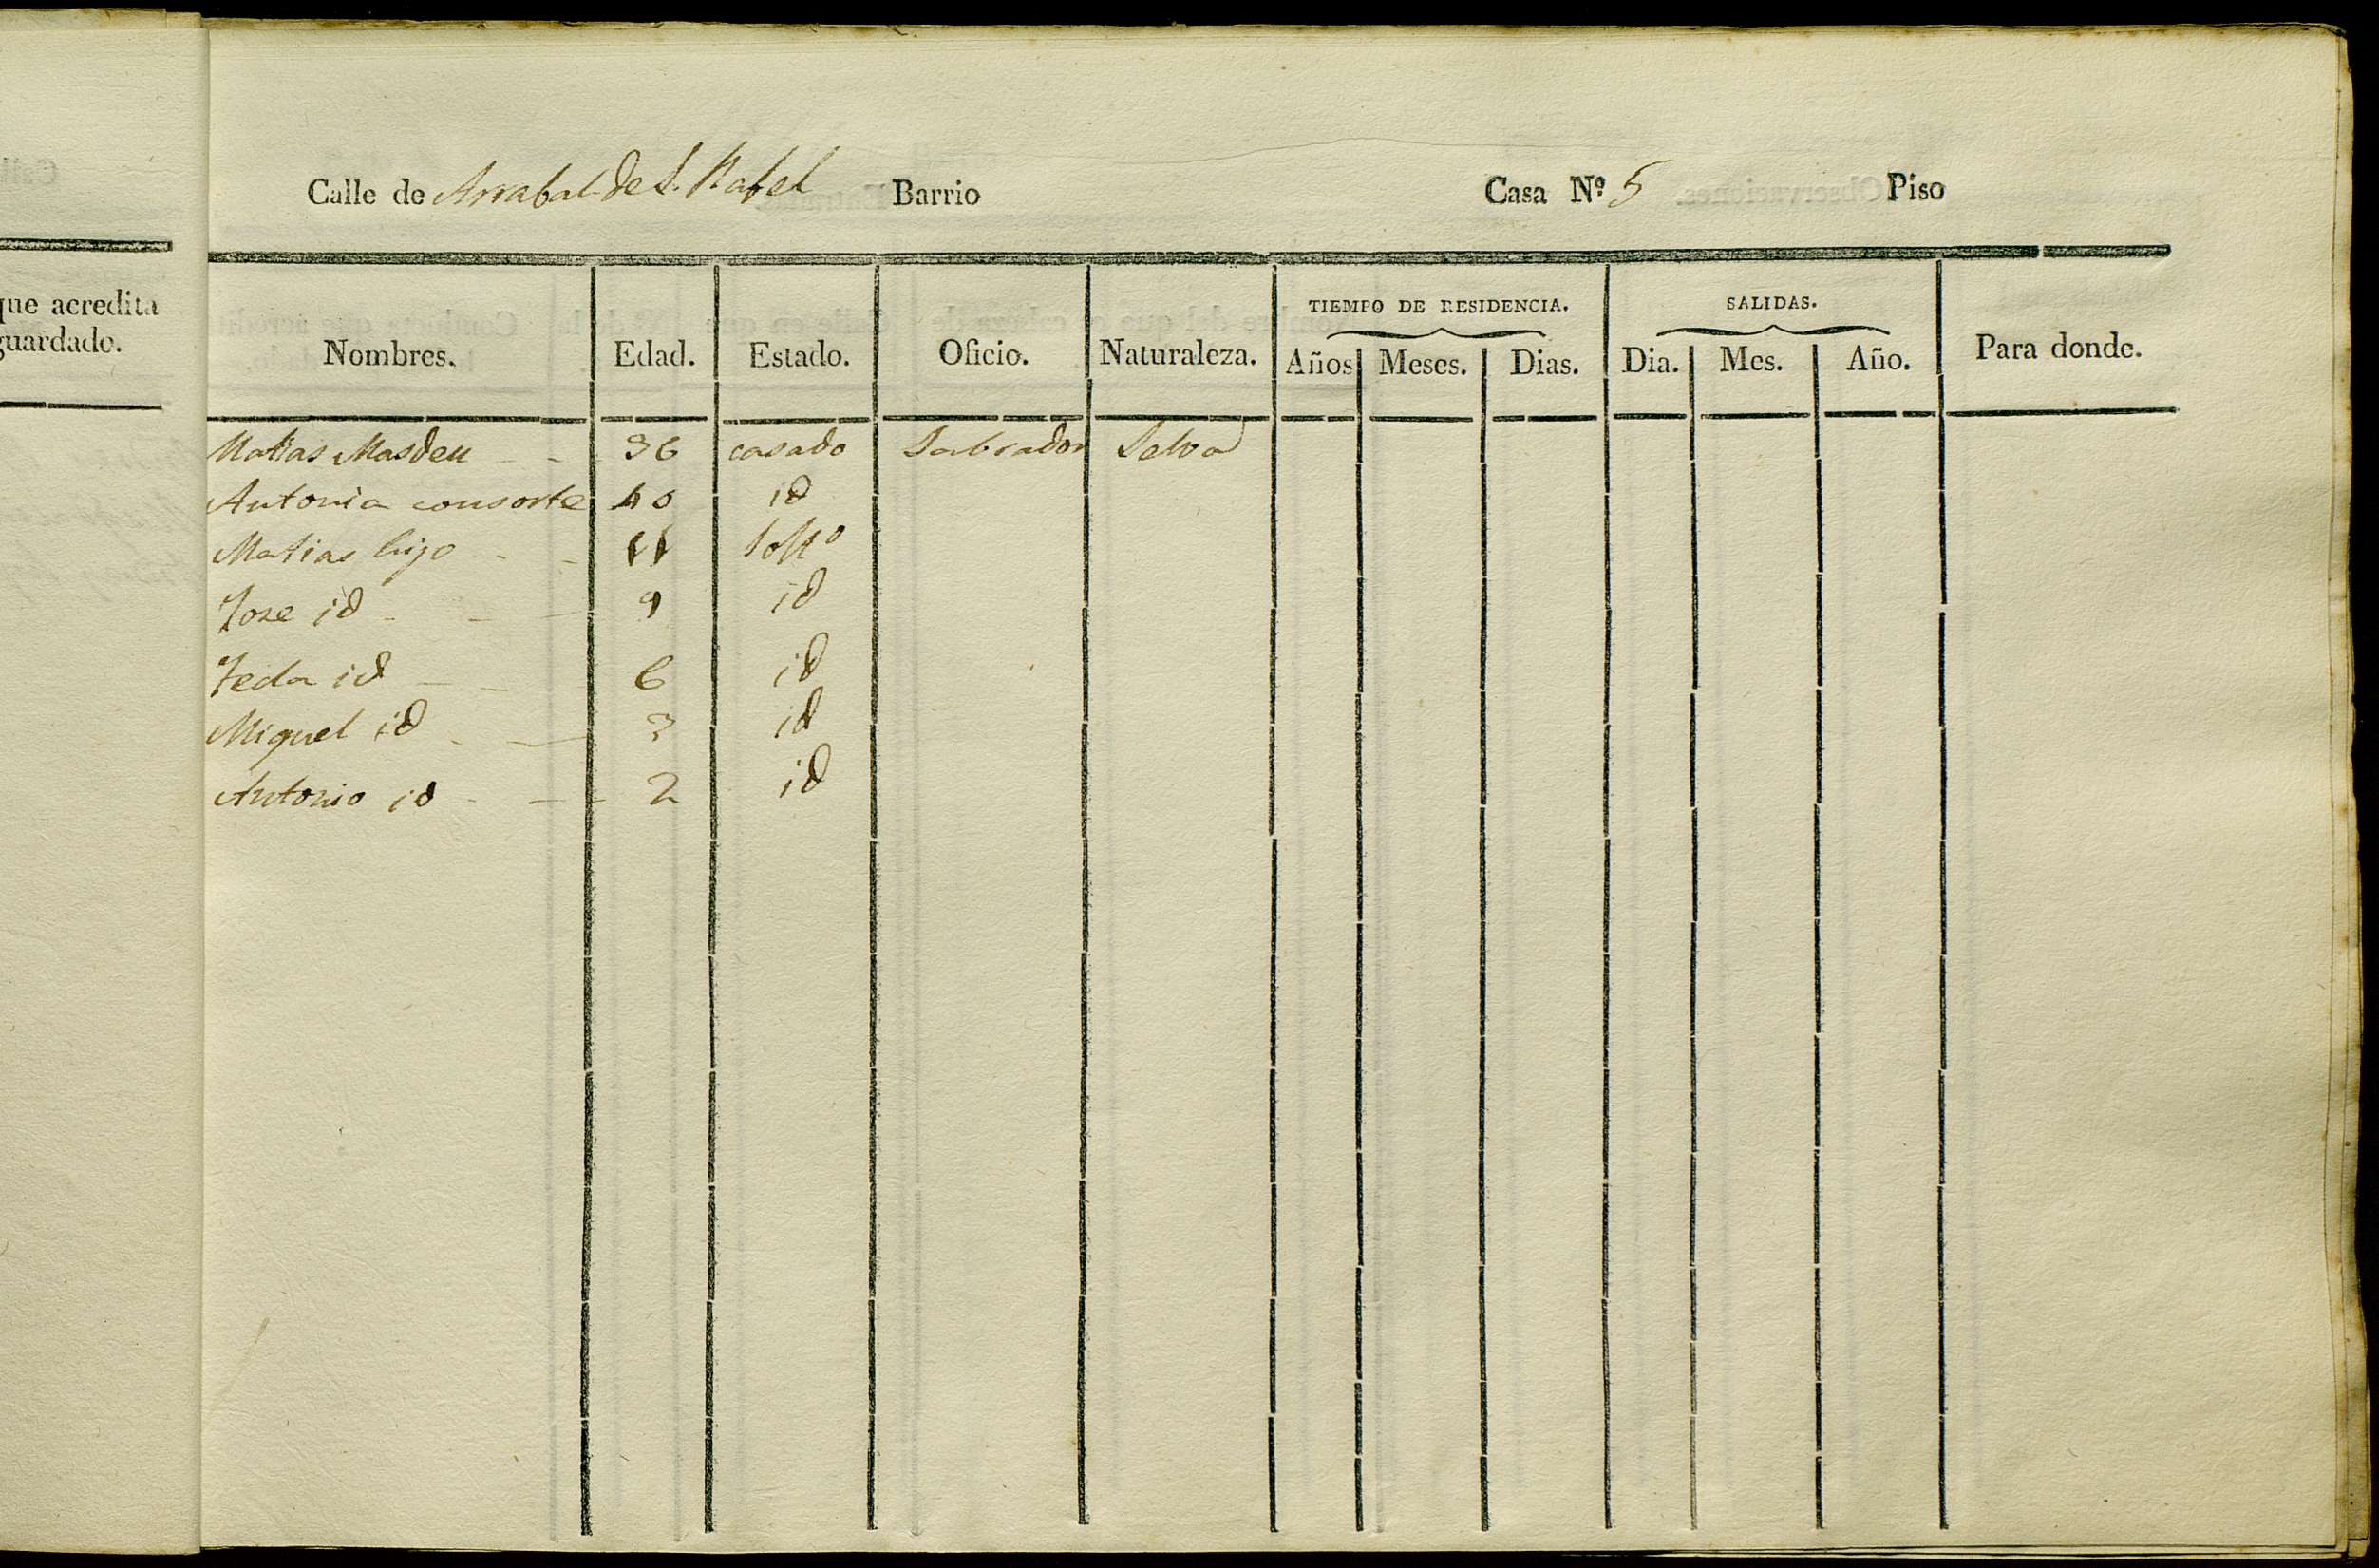 que acredita
guardado.
Calle de Arrabal de S. Rafel Barrio Casa Nº 5 Piso
TIEMPO DE RESIDENCIA. SALIDAS.
Nombres. Edad. Estado. Oficio. Naturaleza. Años Meses. Dias. Dia. Mes. Año. Para donde.
Matias Masdeu 36 casado Labrador Selva
Antonia consorte 40 id
Matias hijo 11 soltº
Jose id 9 id
Tecla id 6 id
Miquel id 3 id
Antonio id 2 id